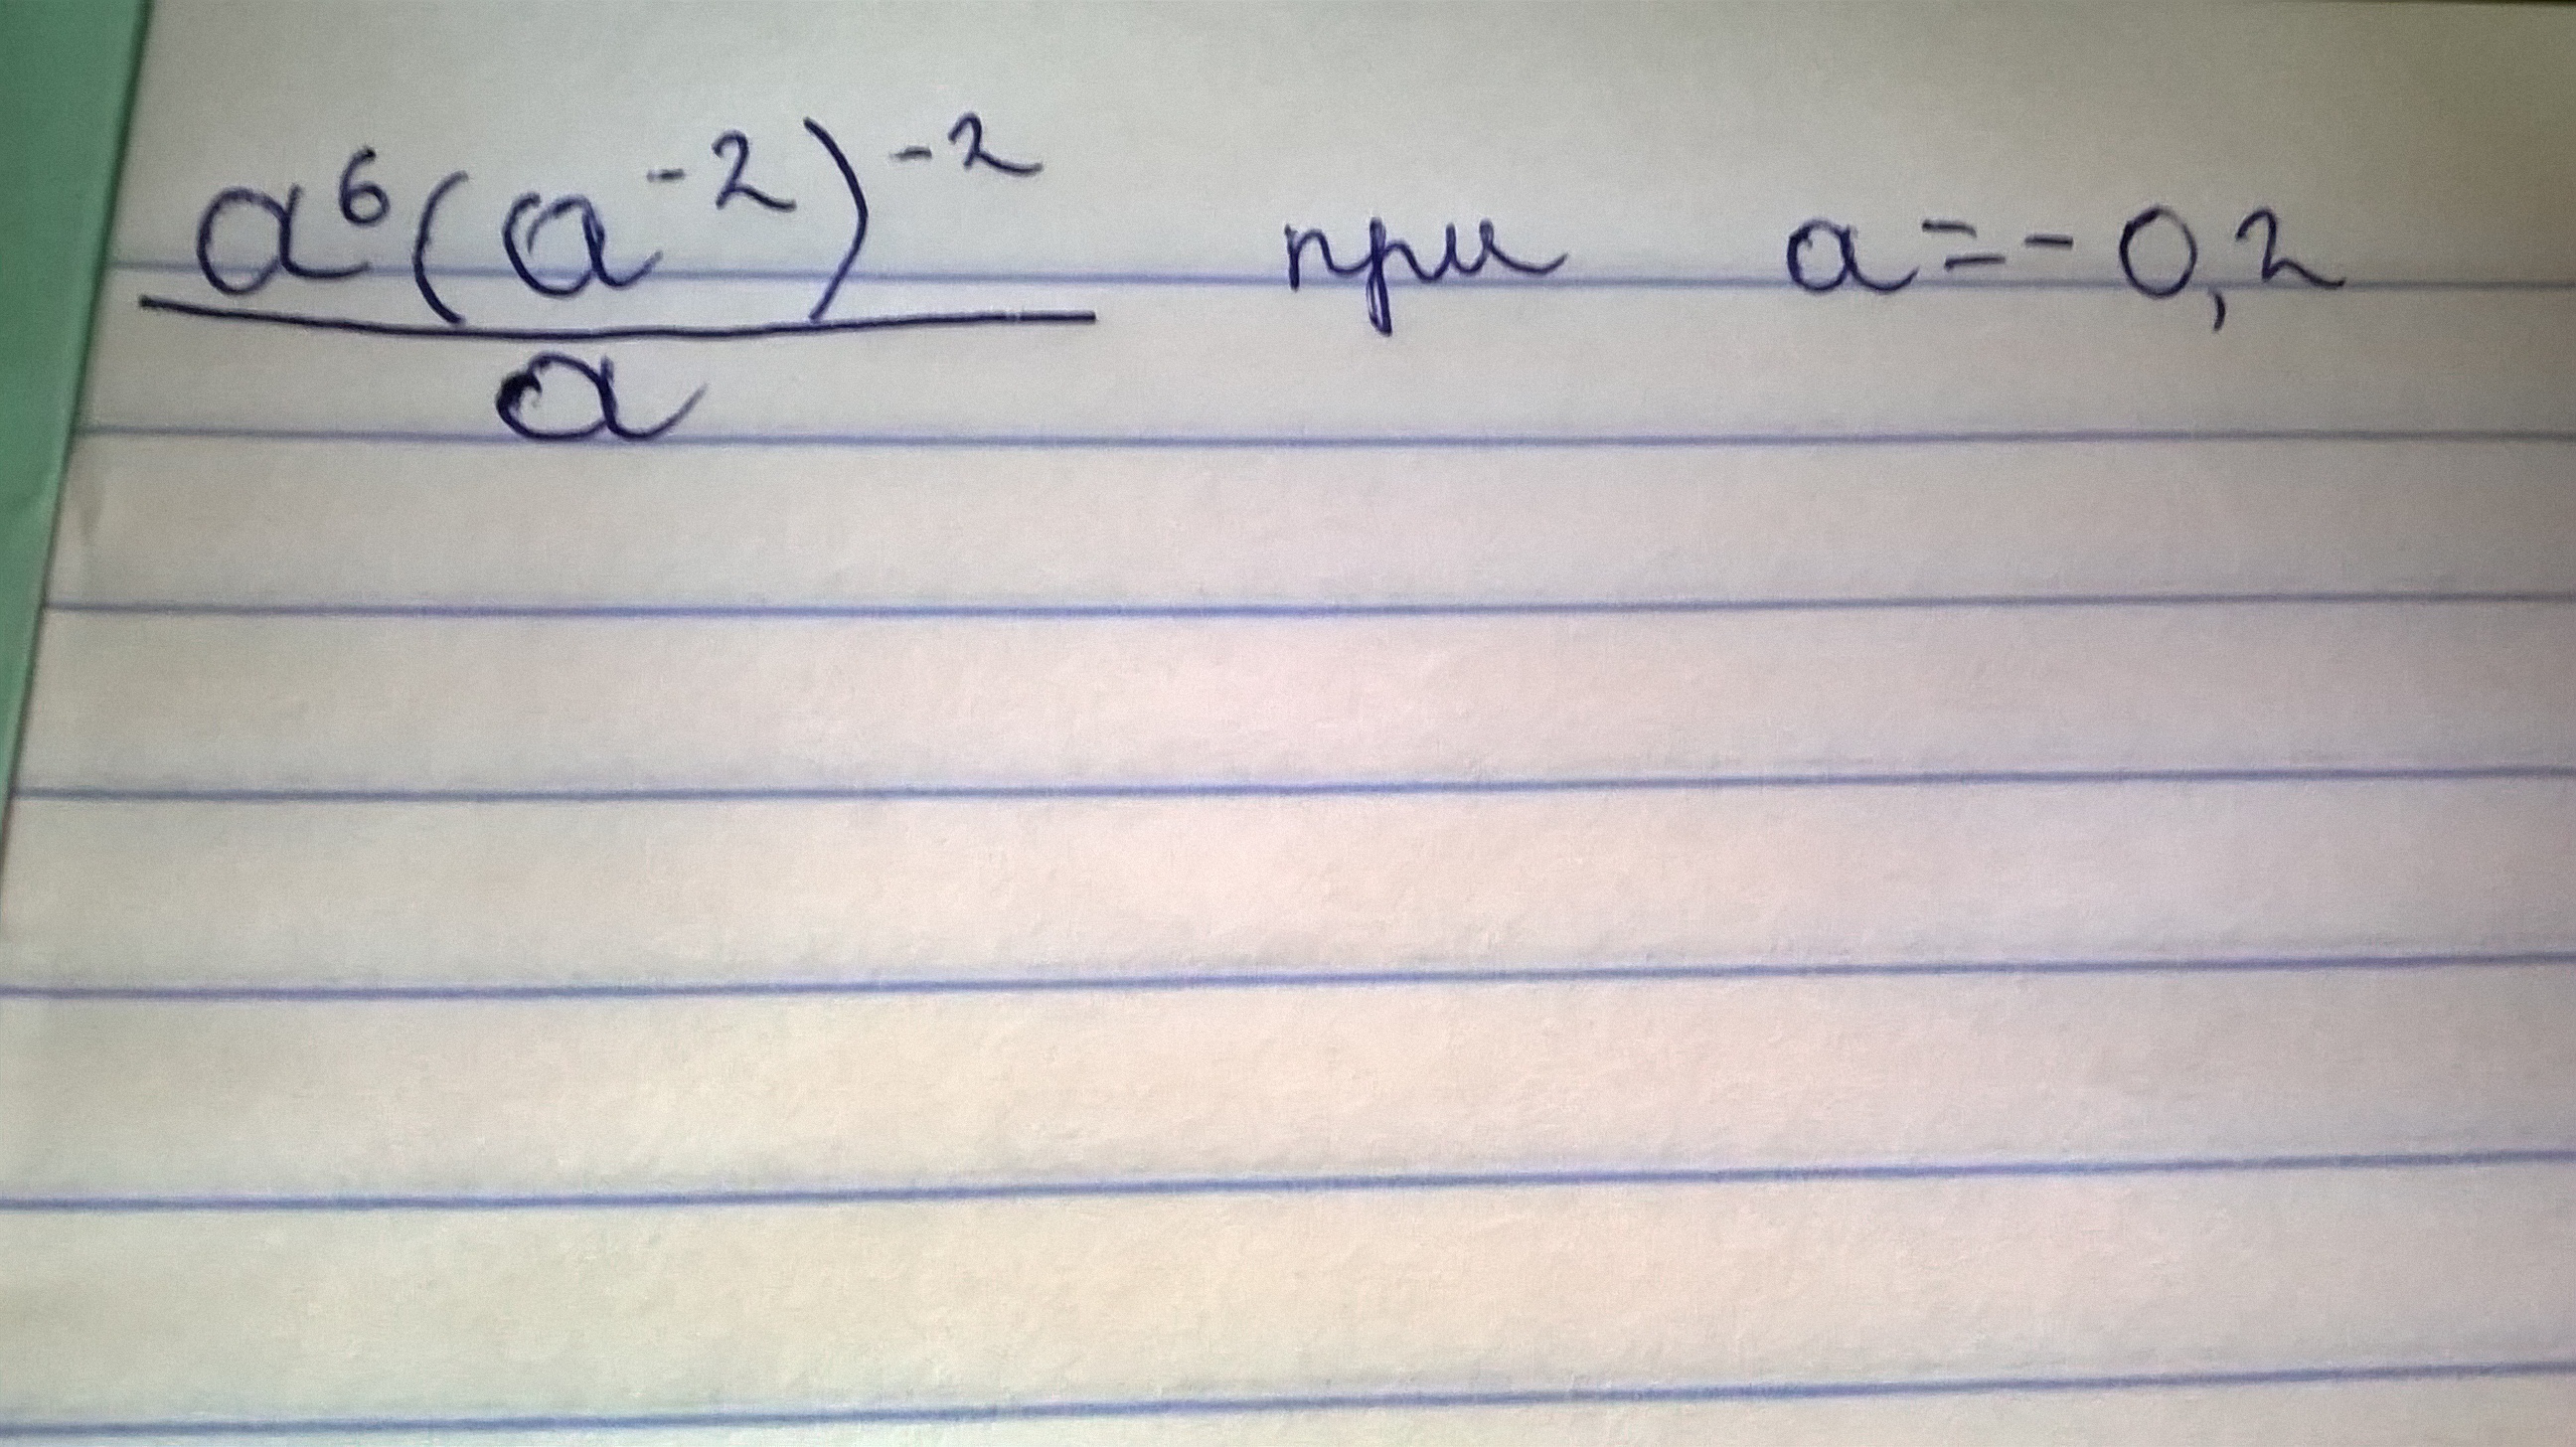 a⁶(a⁻²)⁻² при a=-0,2
a